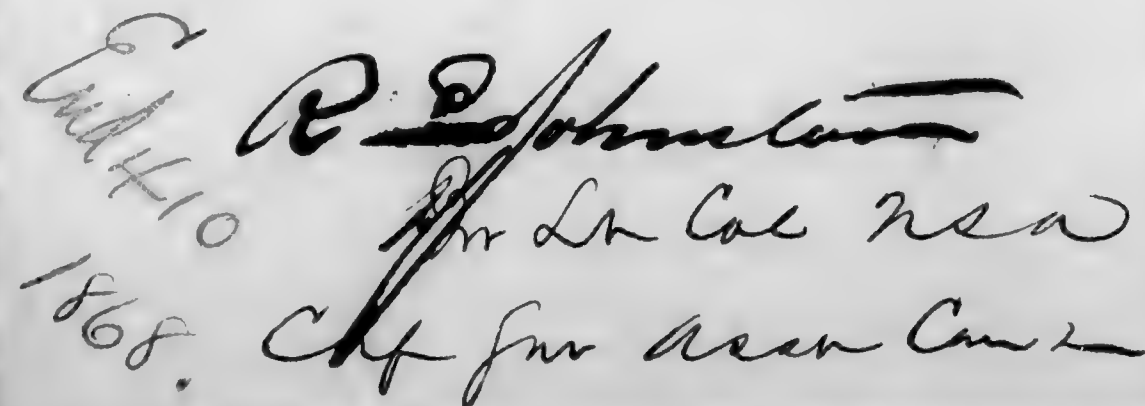 End 410
1868.
R E Johnston
Lt Col USA
Chf Asst Com